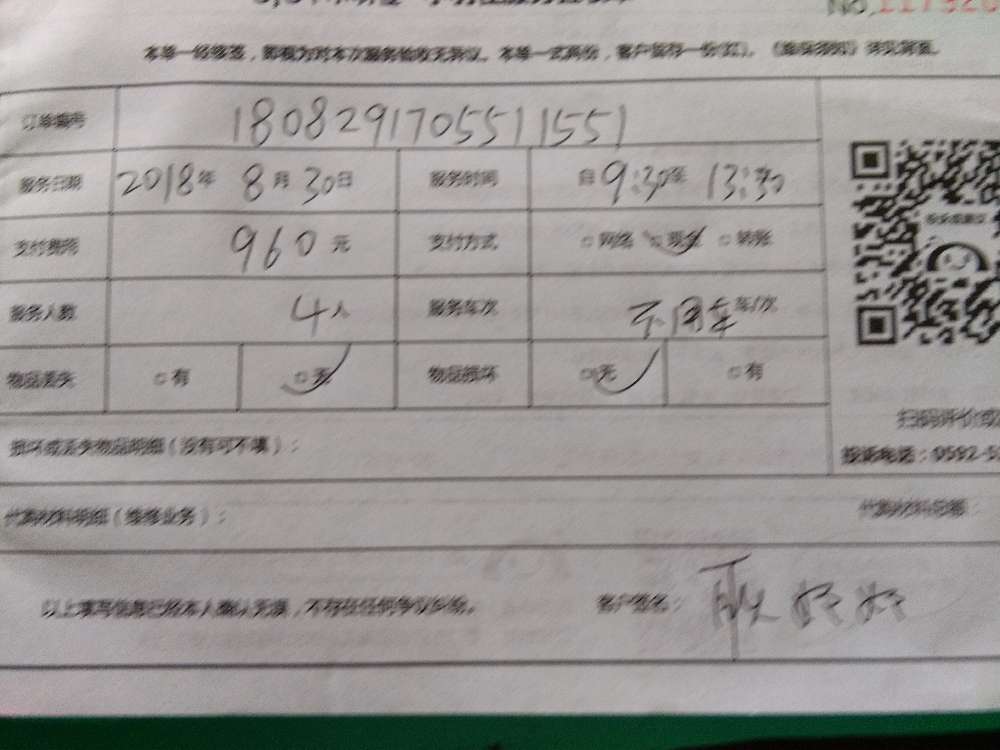 No.
本单一经修签，即视为对本次服务验收无异议。本单一式两份，客户留存一份(红)。
订单编号 180829170551 1551
服务日期 2018年 8月30日 服务时间 自9:30至 13:30
支付费用 960元 支付方式 □网络 □现金 □转账
服务人数 4人 服务车次 不用车 车/次
物品丢失 □有 □无 物品损坏 □无 □有
扫码评价或
损坏或丢失物品明细（没有可不填）：
投诉电话：0592-5
代购材料明细（维修业务）： 代购材料总额：
以上填写信息已经本人确认无误，不存在任何争议纠纷。 客户签名： 耿好好